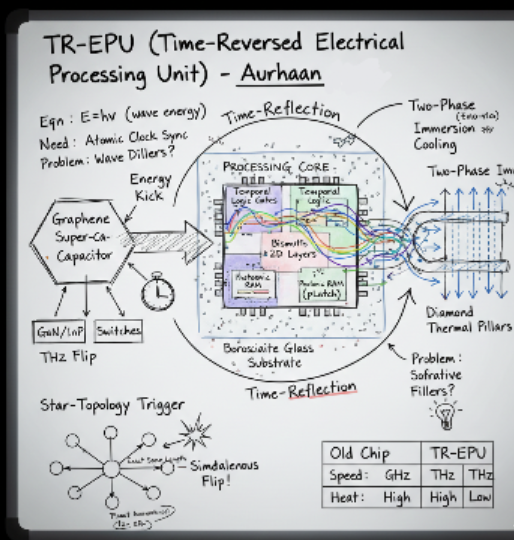 TR-EPU (Time-Reversed Electrical
Processing Unit) - Aurhaan
Eqn : E=hν (wave energy)
Need : Atomic Clock Sync
Problem: Wave Dillers?
Time-Reflection
Two-Phase
Immersion
Cooling
Energy
Kick
Graphene
Super-Ca-
Capacitor
PROCESSING CORE
Temporal
Logic Gates
Temporal
Logic
2D Layers
RAM
RAM
GaN/InP
Switches
THz Flip
Two-Phase Im
Diamond
Thermal Pillars
Borosciaite Glass
Substrate
Time-Reflection
Problem:
Sofrative
Fillers?
Star-Topology Trigger
Simdalenous
Flip!
Old Chip TR-EPU
Speed: GHz THz THz
Heat: High High Low